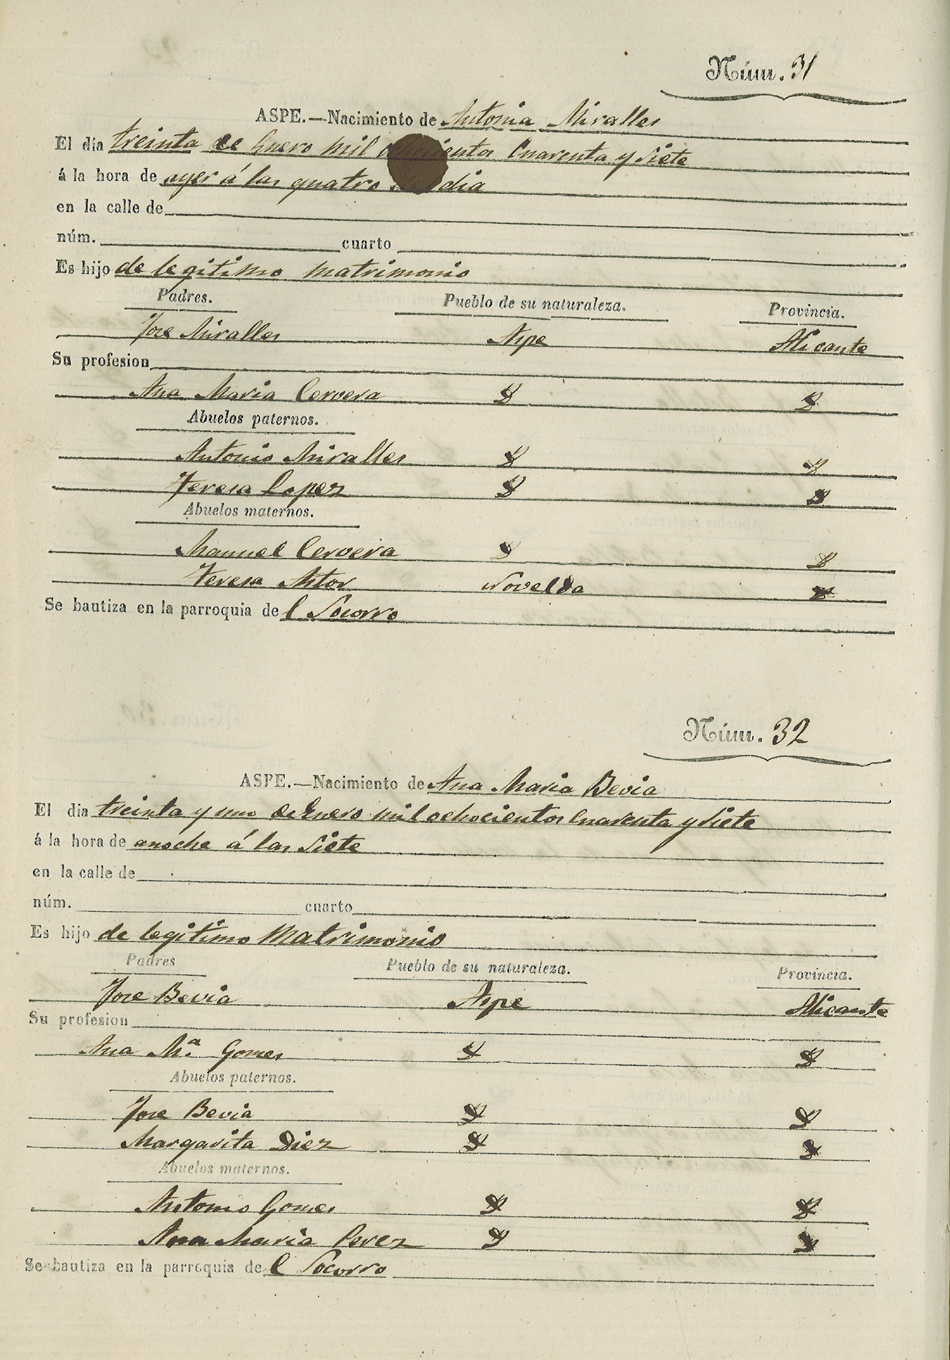 Núm. 31
ASPE.—Nacimiento de Antonia Miralles
El dia treinta de Enero mil ochocientos Cuarenta y Siete
á la hora de ayer á las quatro dia
en la calle de
núm. cuarto
Es hijo de legitimo matrimonio
Padres. Pueblo de su naturaleza. Provincia.
Jose Miralles Aspe Alicante
Su profesion
Ana Maria Cervera
Abuelos paternos.
Antonio Miralles
Teresa Lopez
Abuelos maternos.
Manuel Cervera
Teresa Novelda
Se bautiza en la parroquia de l Socorro
Núm. 32
ASPE.—Nacimiento de Ana Maria Bevia
El dia treinta y uno de Enero mil ochocientos Cuarenta y Siete
á la hora de anoche á las Siete
en la calle de
núm. cuarto
Es hijo de legitimo Matrimonio
Padres Pueblo de su naturaleza. Provincia.
Jose Bevia Aspe Alicante
Su profesion
Ana Mª Gomes
Abuelos paternos.
Jose Bevia
Margarita Diez
Abuelos maternos.
Antonio Gomes
Ana Maria Perez
Se bautiza en la parroquia de l Socorro